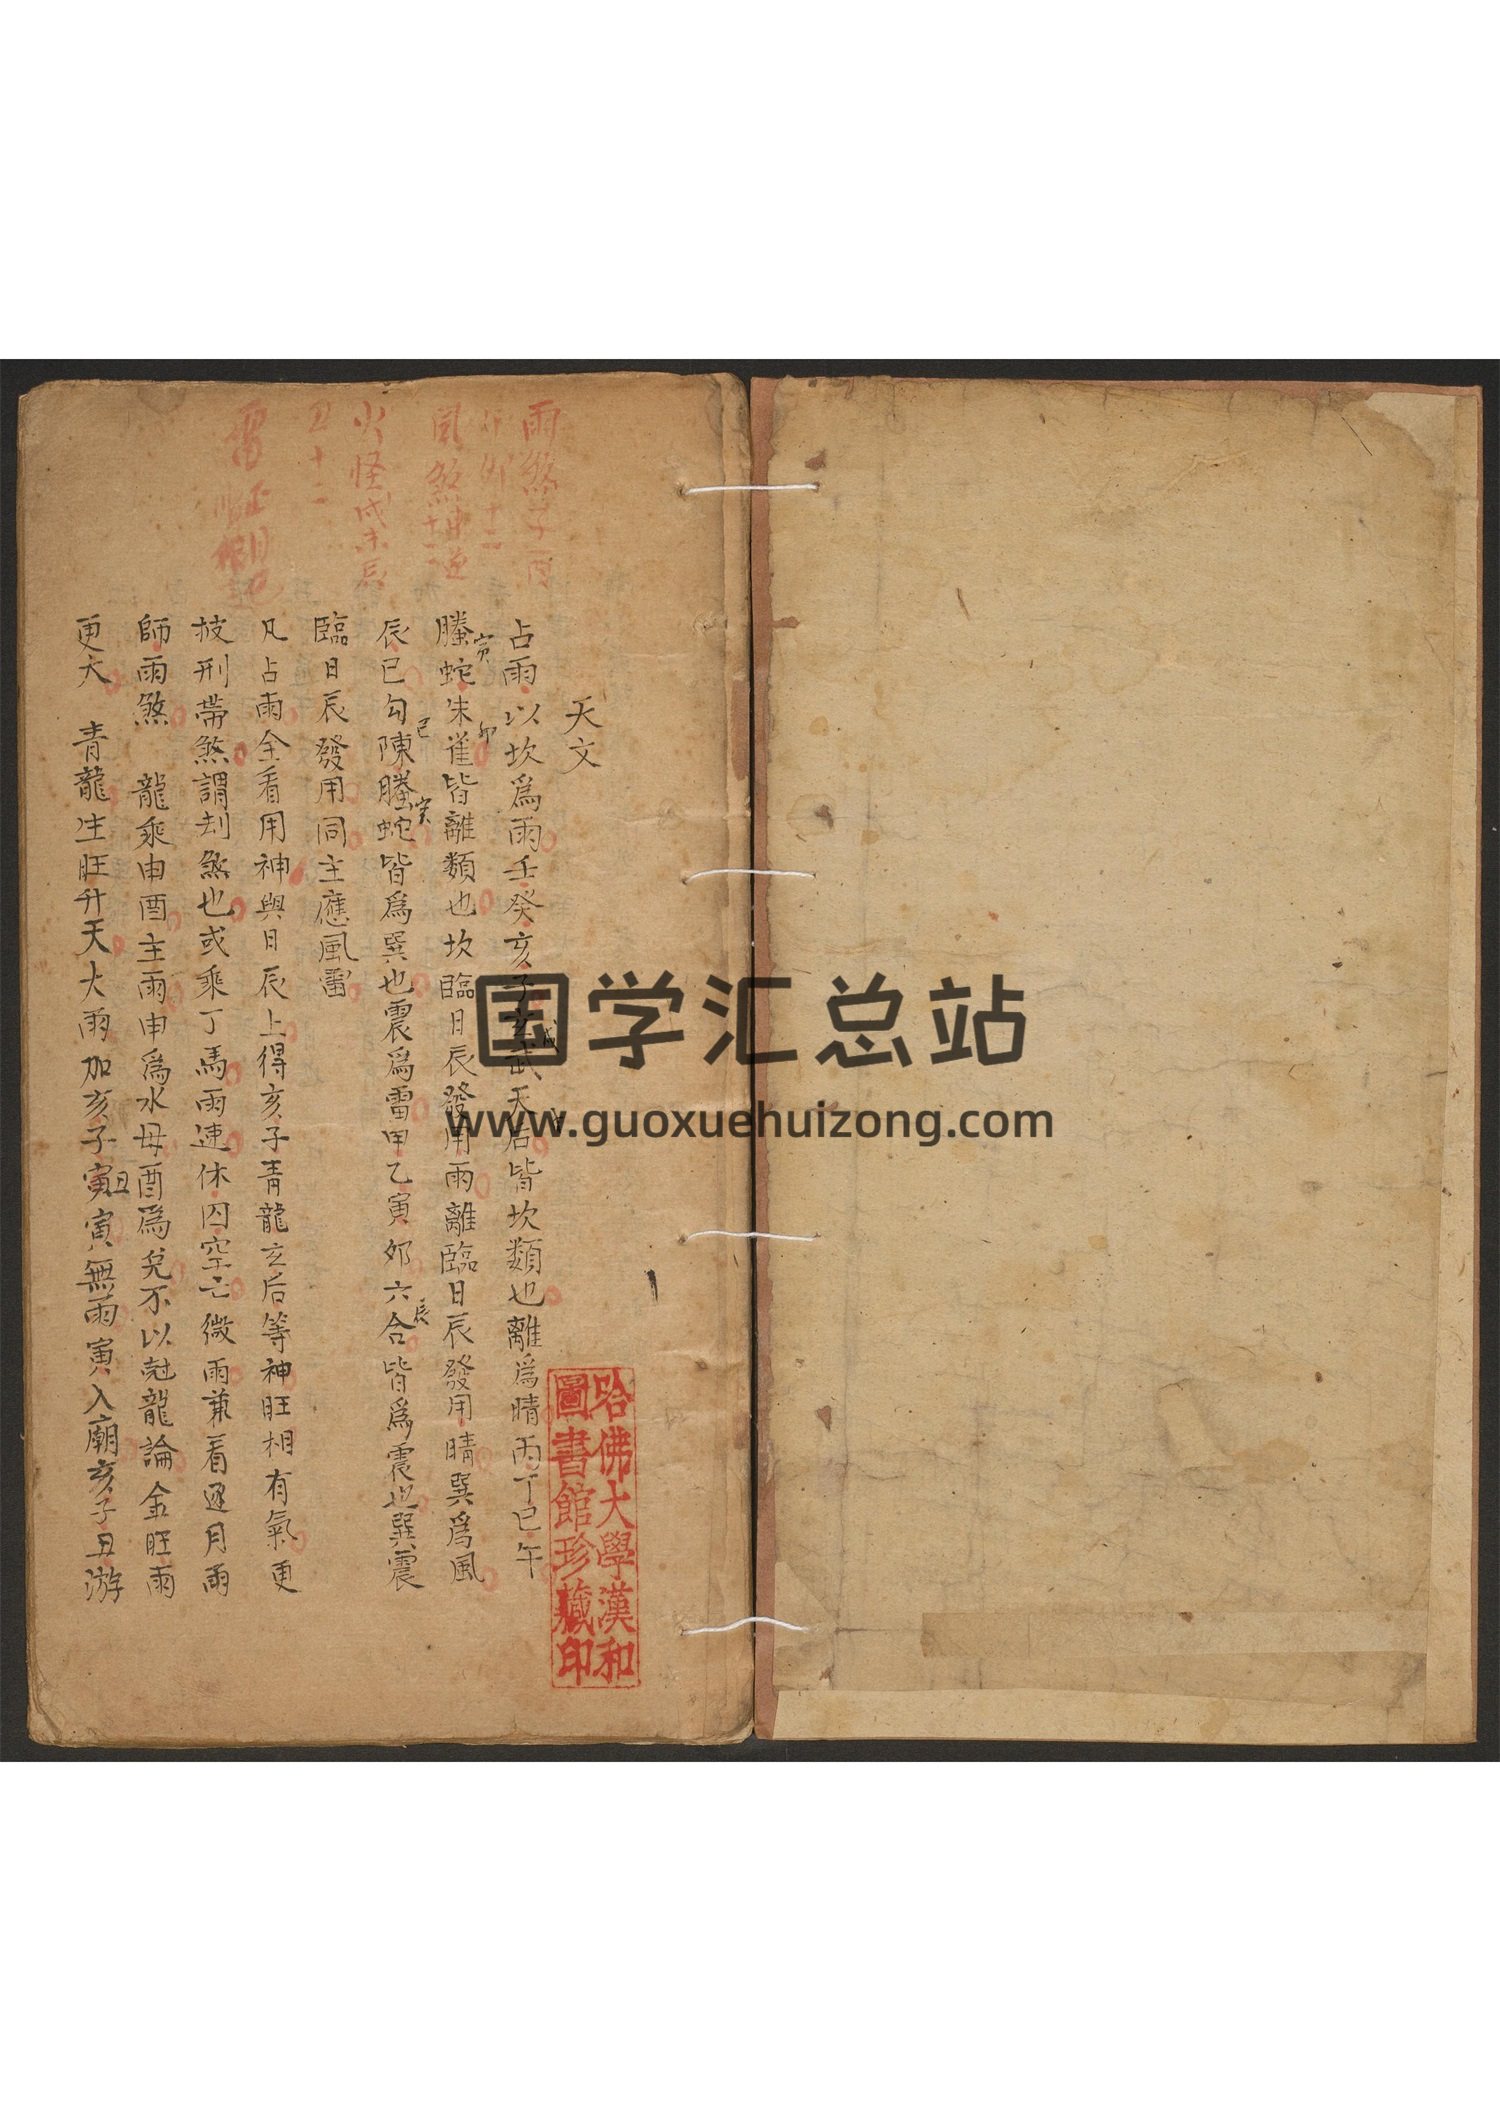 天文
占雨以坎爲雨壬癸亥子玄武天后皆坎類也離爲晴丙丁巳午
螣蛇朱雀皆離類也坎臨日辰發用雨離臨日辰發用晴巽爲風
寅
卯
辰巳勾陳螣蛇皆爲巽也震爲雷甲乙寅卯六合皆爲震也巽震
巳
寅
辰
臨日辰發用同主應風雷
凡占雨全看用神與日辰上得亥子青龍玄后等神旺相有氣更
披刑帶煞謂刦煞也或乘丁馬雨速休囚空亡微雨兼看逐月雨
師雨煞 龍乘申酉主雨申爲水母酉爲兌不以尅龍論金旺雨
更大 青龍生旺升天大雨加亥子寅寅無雨寅入廟亥子丑游
丑
雨煞子
卯十二
風煞申逆十二
火怪戌未辰
丑十二
雷
哈佛大學漢和
圖書館珍藏印
国学汇总站
www.guoxuehuizong.com